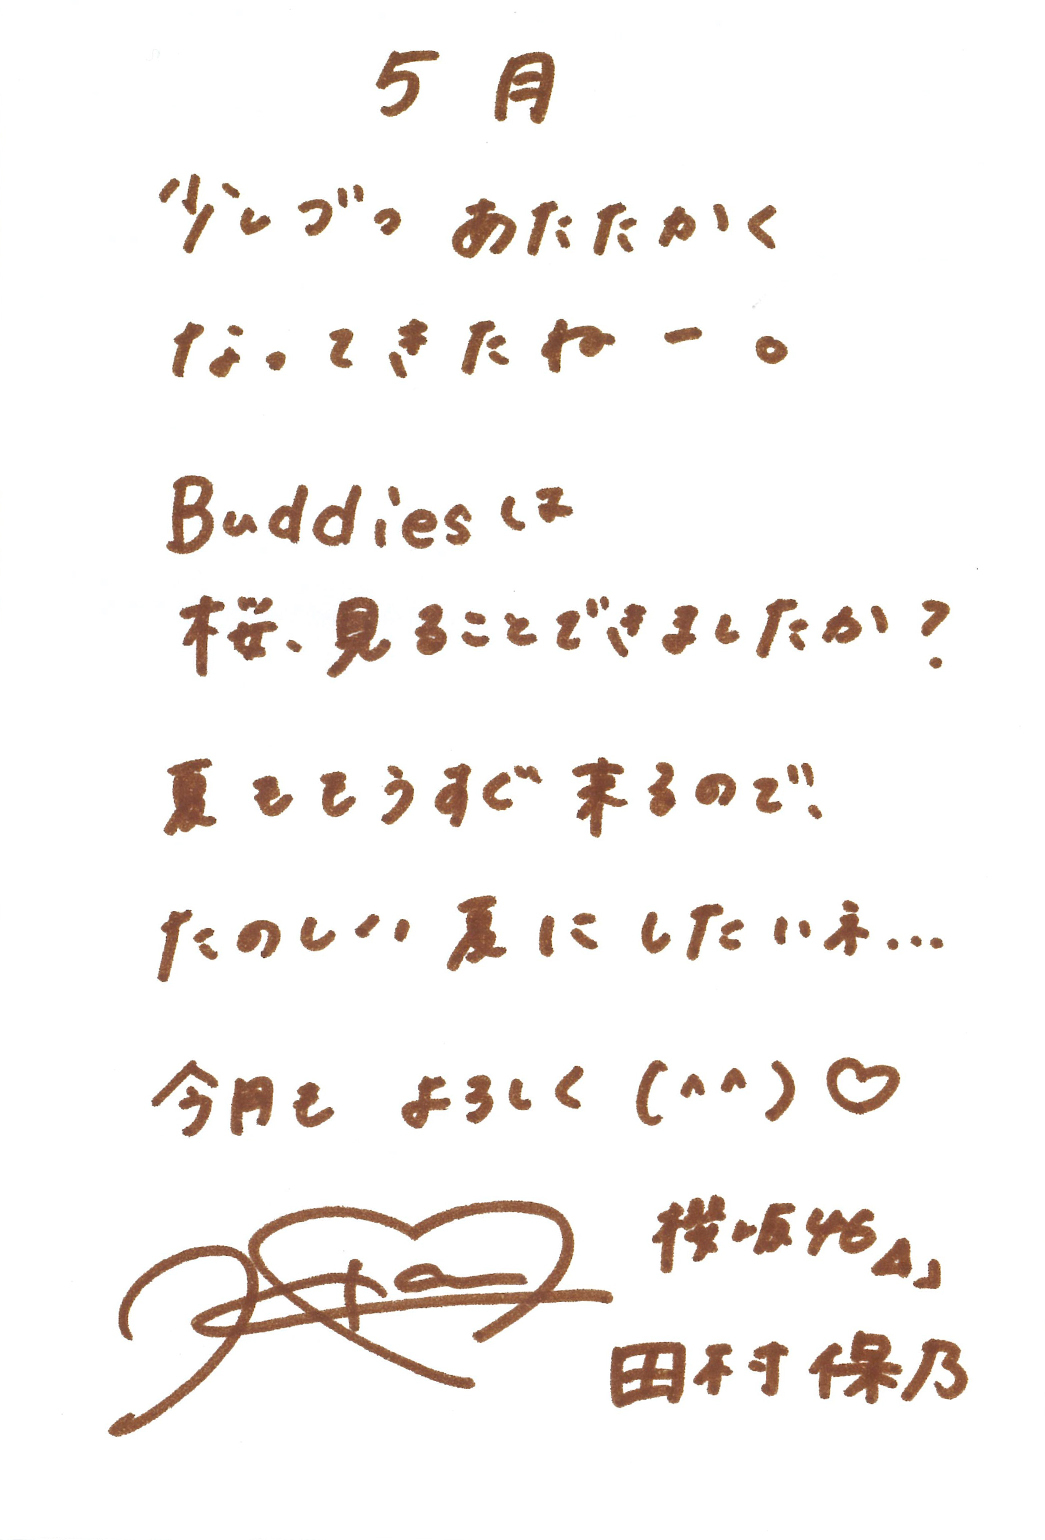 5月
少しづつ あたたかく
なってきたねー。
Buddiesは
桜、見ることできましたか?
夏ももうすぐ来るので、
たのしい夏にしたいネ...
今月も よろしく(^^)♡
櫻坂46
田村保乃